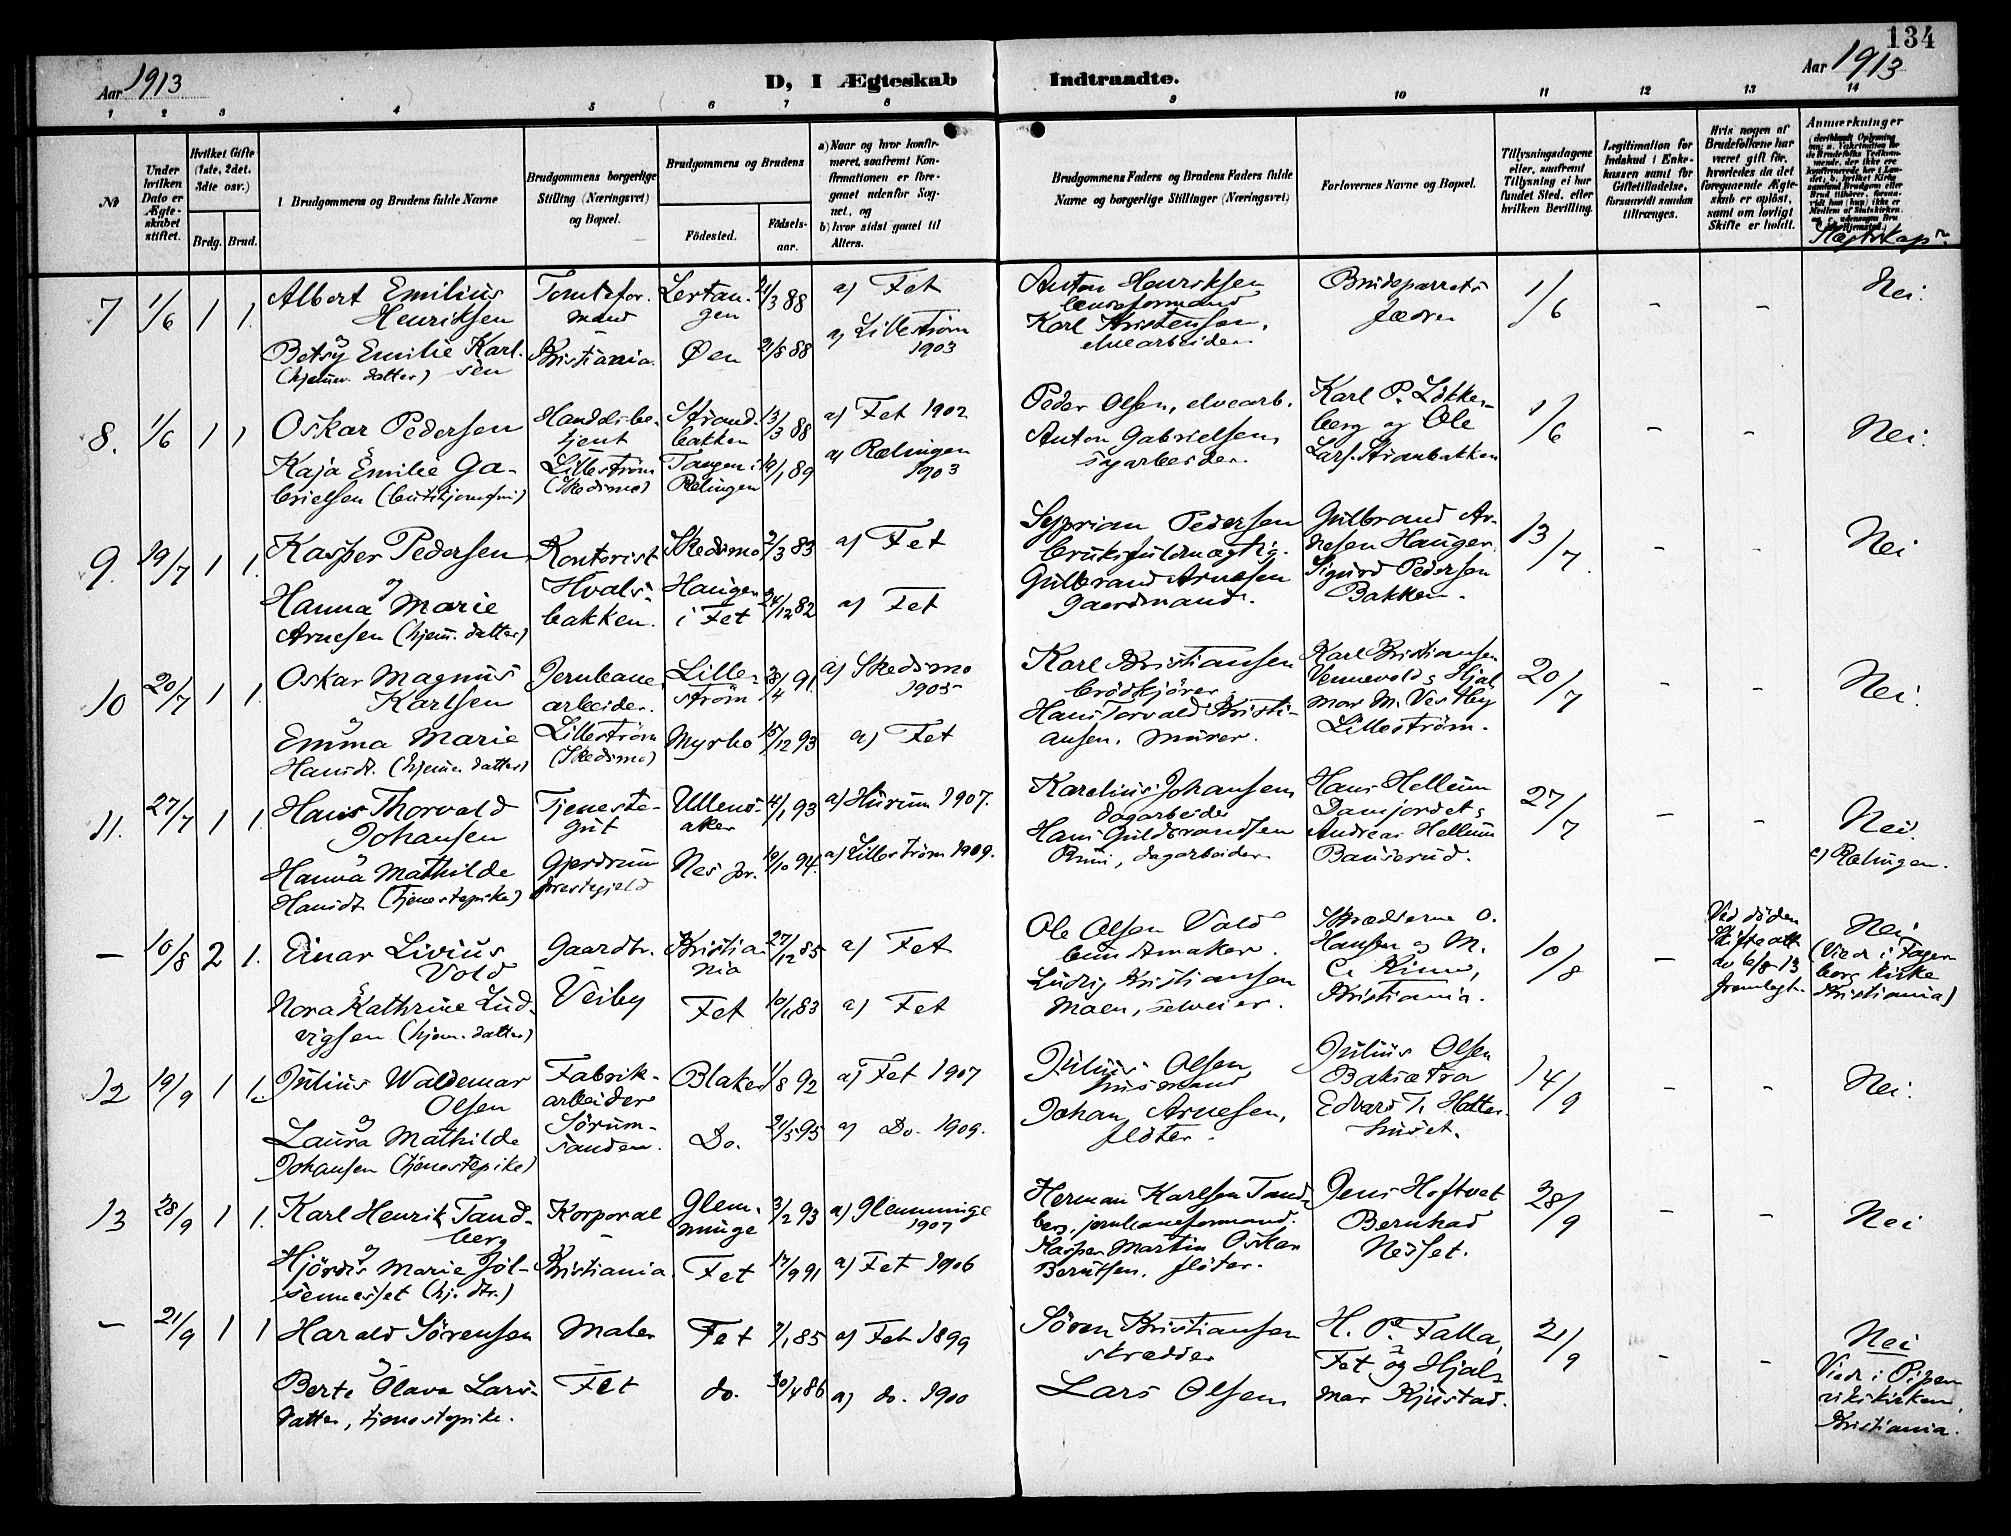 134
Aar 1913
D, I Ægteskab Indtraadte.
Aar 1913
1 2 3 4 5 6 7 8 9 10 11 12 13 14
№
Under hvilken Dato er Ægteskabet stiftet.
Hvilket Gifte (1ste, 2det, 3die osv.)
Brdg. Brud.
Brudgommens og Brudens fulde Navne
Brudgommens borgerlige Stilling (Næringsvei) og Bopæl.
Brudgommens og Brudens
Fødested. Fødselsaar.
a) Naar og hvor konfirmeret, saafremt Konfirmationen er foregaaet udenfor Sognet, og
b) hvor sidst gaaet til Alters.
Brudgommens Faders og Brudens Faders fulde Navne og borgerlige Stillinger (Næringsvei)
Forlovernes Navne og Bopæl.
Tillysningsdagene eller, saafremt Tillysning ei har fundet Sted, efter hvilken Bevilling.
Legitimation for Indskud i Enkekassen samt for Giftetilladelse, forsaavidt saadan tiltrænges.
Hvis nogen af Brudefolkene har været gift før, hvorledes da det foregaaende Ægteskab er opløst, samt om lovligt Skifte er holdt.
Anmærkninger
Slegtskap?
7 1/6 1 1. Albert Emilius Tomtefor- Lertan- 21/3 88 a) Fet Anton Henriksen Brudeparrets 1/6 - - Nei.
Henriksen mand gen lenseformand fædre
Betsy Emilie Karl- Kristiania. Øen 21/8 88 a) Lillestrøm 1903 Karl Kristensen, elvearbeider.
(hjemv. datter) sen
8. 1/6 1 1 Oskar Pedersen Handelsbe- Strand- 13/3 88 a) Fet 1902 Peder Olsen, elvearb. Karl P. Løkken- 1/6 - - Nei.
tjent bakken berg og Ole
Kaja Emilie Ga- Lillestrøm Tangen i 19/1 89 a) Rælingen 1903 Anton Gabrielsen, Lars. Stranbakken
brielsen (butikjomfru) (Skedsmo) Rælingen sagarbeider.
9. 19/7 1 1. Kasper Pedersen Kontorist Skedsmo 2/3 83 a) Fet Syprian Pedersen Gulbrand Ar- 13/7 - - Nei
bruksfuldmægtig. nesen Hauger.
Hanna Marie Hvals- Haugen 24/12 82 a) Fet Gulbrand Arnesen Sigurd Pedersen
Arnesen (hjem. datter) bakken. i Fet gaardmand. Bakken.
10 20/7 1 1. Oskar Magnus Jernbane- Lille- 28/4 91 a) Skedsmo Karl Kristiansen Karl Kristiansen 20/7 - - Nei.
Karlsen arbeider. strøm 1905 brødkjører. Vennevold & Hjal
Emma Marie Lillestrøm Myrbo 15/12 93 a) Fet Hans Torvald Kristi- mar M. Vestby
Hansdt. (hjemv. datter) (Skedsmo) ansen. Murer. Lillestrøm.
11. 27/7 1 1. Hans Thorvald Tjeneste- Ullens- 4/1 93 a) Hurum 1907. Karelius Johansen, Hans Hellum 27/7 - - Nei.
Johansen gut aker dagarbeider Damjordet &
Hanna Mathilde Gjerdrum Nes pr. 19/10 94. a) Lillestrøm 1909. Hans Guldbrandsen Andreas Hellum c) Rælingen.
Hansdt. (tjenestepike) prestegjeld Ruui, dagarbeider Bauserud.
- 10/8 2 1. Einar Livius Gaardbr. Kristia- 27/12 85 a) Fet Ole Olsen Vold Skrædderne O. 10/8 - Ved døden Nei
Vold nia buntmaker. Hansen og M. Skifteatt. (Viede i Fager-
Nora Kathrine Lud- Veiby Fet 10/1 83 a) Fet Ludvig Kristiansen Kristiania. dv 6/8-13 borg kirke
vigsen (hjem. datter) Moen, selveier. fremlagt. Kristiania)
12 19/9 1 1. Julius Waldemar Fabrik- Blaker 1/8 92 a) Fet 1907 Julius Olsen Julius Olsen 14/9 - - Nei.
Olsen arbeider husmand Baksætra
Laura Mathilde Sørum- Do. 21/5 95 a) Do. 1909. Johan Arnesen, Edvard T. Hatter-
Johansen (tjenestepike) sanden. fløter. huset.
13 28/9 1 1. Karl Henrik Tand- Korporal Glem- 3/2 93 a) Glemminge 1907 Herman Karlsen Tand- Jens Hoftvet 28/9 - - Nei
berg - minge berg, jernbaneformand. Bernhad
Hjørdis Marie Jøl- Kristiania. Fet 17/9 91 a) Fet 1906 Kasper Martin Oskar Nesset.
sennesset (hj. dtr.) Berntsen, fløter.
- 21/9 1 1 Harald Sørensen Maler Fet 7/1 85 a) Fet 1899 Søren Kristiansen H. P. Falla, 21/9 - - Nei
skrædder Fet og Hjal- Viede i Piper-
Berte Olava Lars- Fet do. 30/4 86 a) do. 1900 Lars Olsen mar Kjustad. vikskirken,
datter, tjenestepike. Kristiania.